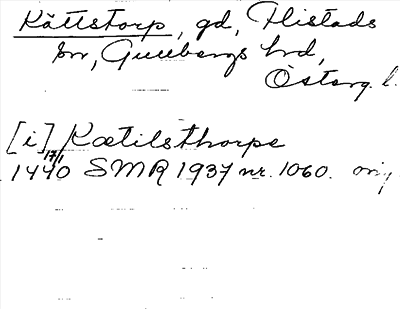 Kättstorp, gd, Flistads
sn, Gullbergs hrd,
Österg. l.
[i] Kætilsthorpe
17/1 1440 SMR 1937 nr. 1060. orig